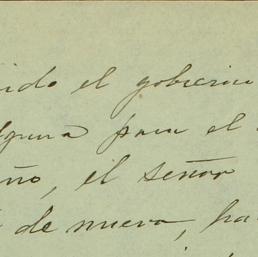 ido el gobierno
para el
ño, el señor
de nuevo, ha